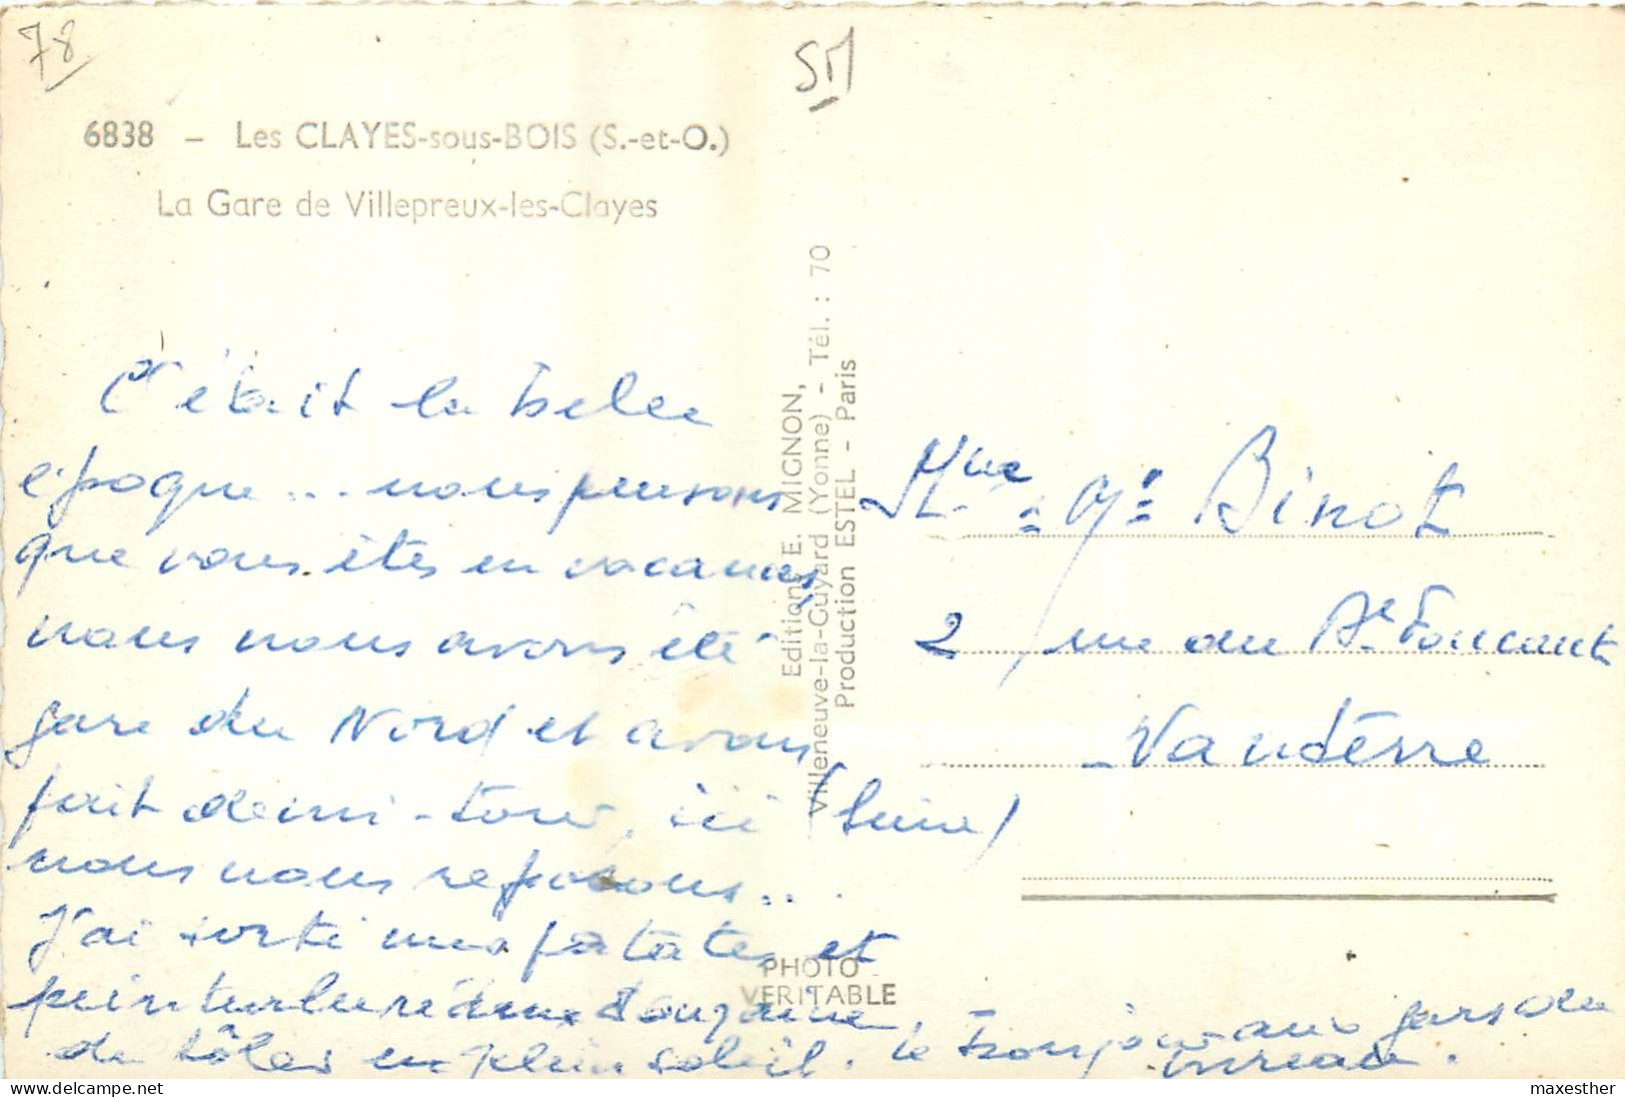 78
SM
6838 – Les CLAYES-sous-BOIS (S.-et-O.)
La Gare de Villepreux-les-Clayes
C'était la belle
époque... nous pensons
que vous êtes en vacances,
nous nous avons été
gare du Nord et avons
fait demi-tour, ici
nous nous reposons...
J'ai sorti mes patates et
peinturluré deux douzaines
de tôles en plein soleil. Le bonjour aux gars du
bureau.
Editions E. MIGNON,
Villeneuve-la-Guyard (Yonne) - Tél. : 70
Production ESTEL - Paris
PHOTO
VERITABLE
Mme Binot
2 rue du
Nanterre
maxesther